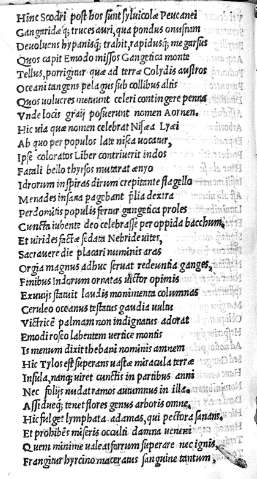 Hinc Scodri post hos sunt syluicolæ Peucanei
Gangaridæq; truces auri, qua pondus onustum
Deuoluens hypanisq; trahit, rapidusq; megarsus
Quos capit Emodo missos Gangetica monte
Tellus, porrigitur quæ ad terræ Colydis austros
Oceani tangens pelagus sub collibus altis
Quos uolucres metuunt celeri contingere penna
Vnde locis graij posuerunt nomen Aornen.
Hic uia quæ nomen celebrat Nisæa Lyæi
Ab quo per populos late nisæa uocatur,
Ipse coloratos Liber contriuerit indos
Fatali bello thyrsos mutarat ænyo
Idrorum inspiras dirum crepitante flagello
Menades insana pagebant filia dextra
Perdomitis populis fertur gangetica proles
Cuncta iubente deo celebrasse per oppida bacchum,
Et uirides factæ sedata Nebride uites,
Sacrauere die placari numinis aras
Orgia magnus adhuc seruat redeuntia ganges,
Finibus Indorum ornatus uictor opimis
Exuuijs statuit laudis monimenta columnas
Ceruleo oceanus testatus gaudia uultu
Victricē palmam non indignatus adorat
Emodi rosco labrentem uertice montis
Is menum dixit thebani nominis amnem
Hic Tylos est superans uastæ miracula terræ
Insula, nanq; uiret cunctis in partibus anni
Nec folijs nudat ramos autumnus in illa.
Assidueq; tenet flores genus arboris omne,
Hic fulget lymphata adamas, qui pectora sanans.
Et prohibēs miseris occulti damna ueneni
Quem minime ualeat ferrum superare nec ignis
Frangitur hyrcino maceratus sanguine tantum,